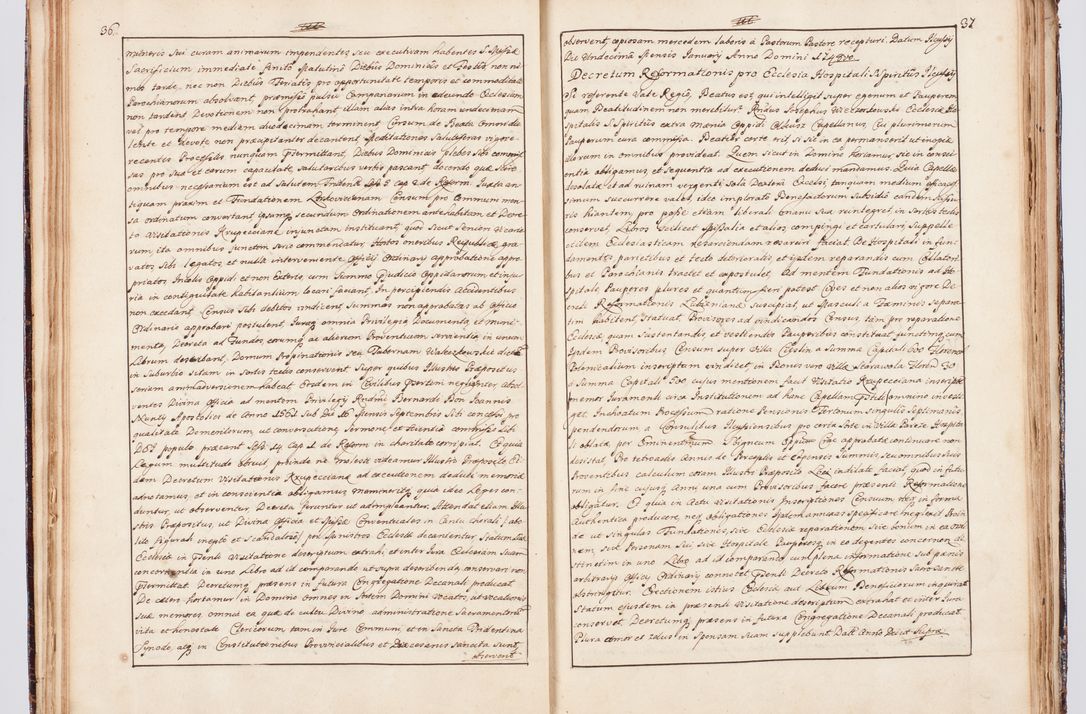 36.
muneris sui curam animarum impendentes seu executivam habentes S. Missæ
Sacrificium immediate finito Matutino Diebus Dominicis et Festis non ni-
mis tarde, nec non Diebus Ferialis pro opportunitate temporis et commoditate
Parochianorum absolvant, præmisso pulsu Campanarum in eundo Ecclesiam
non tardent Devotionem non protrahant illam alias intra horam undecimam
vel pro tempore mediam duodecimam terminent Cursum de Beata omni die
lebite et devote non præcipitanter decantent Meditationes salutiferas vigore
recentes Processus nunquam Prætermittant, Diebus Dominicis plebes sibi commis-
sas pro sua et earum capacitate, salutaribus verbis pascant docendo quæ scire
omnibus necessarium est ad Salutem Tridenti. Juxta an-
tiquam praxim et Fundationem Censum pro Communi men-
sa ordinatum convertant ipsumq secundum Ordinationem ante habitam et Decre-
to Visitationis Krupecciana injunctam Instituant, quod sicut Seniori Vicario-
rum, ita omnibus junctim serio commendatur. Hortos oneribus Reipublicæ gra-
vatos sibi legatos, et nulla interveniente Officij Ordinarij approbatione appro-
priatos Incolis Oppidi et non Exteris, cum Summo Præjudicio Oppidanorum et inju-
ria in contiguitate habitantium locari faciant. In percipiendis Accidentibus
non excedant, Census sibi debitos vindicent, Summas non approbatas ab Officio
Ordinario approbari postulent Juraq omnia Privilegia Documenta et Muni-
menta, Decreta ad Fundos eorumq ac alterum Proventuum servientia in unum
Librum describant, Domum Propinationis seu Tabernam Walaszkowska dictæ
in Suburbio sitam in Sartis tectis conservent. Super quibus Illustris Præpositus
seriam animadversionem habeat. Eosdem in Cantibus Portim negligenter obser-
ventes Divina Officia ad mentem Privilegij Rndmi Bernardi Bon Joannis
Nuntij Apostolici de Anno 1581 Sub Die 16 Mensis Septembris Sibi concessi pro
qualitate Demeritorum ut conversatione Sermone et Scientia commissis Sibi
DEI populo præeant Sess 14 Cap 1 de Reform in charitate corripiat. Et quia
Legum multitudo obruit, proinde ne molesti videamur Illustri Præposito Ei-
dem Decretum Visitationis Krupecciana ad executionem deduci memoria
adnotamus, et in conscientia obligamus, meminerit, quia ideo Leges con-
duntur, ut observentur, Decreta feruntur ut adimpleantur. Attendat etiam Illu-
stris Præpositus, ut Divina Officia et Missæ Conventuales in Cantu chorali (abo-
lito figurali inepto et scandaloso) per Ministros Ecclesiæ decantentur Statum Suæ
Ecclesiæ in Præsenti Visitatione descriptum extrahi et inter Jura Ecclesiarum Suarum
concernentia in uno Libro ad id comparando ut supra describenda conservari non
Prætermittat. Decretumq præsens in futura Congregatione Decanali producat.
De cætero hortamur in Domino omnes in Sortem Domini vocatos, ut vocationis
Suæ memores omnia ea quæ de cultu Divino administratione Sacramentorũ
vita et honestate Clericorum tam in Jure Communi, et in Sancta Tridentina
Synodo, atq in Constitutionibus Provincialibus et Diœcesanis sancita sunt,
observent
37
observent, copiosam mercedem laboris a Pastorum Pastore recepturi. Datum Ilkusij
Die Undecima Mensis Januarij Anno Domini 1748vo.
Decretum Reformationis pro Ecclesia Hospitali S. Spiritus Ilcussij
Sic referente Vate Regio, Beatus est qui intelligit super egenum et Pauperem
quam Beatitudinem non merebitur Rndus Josephus Ecclesiæ Ho-
spitalis S. Spiritus extra mænia Oppidi Olkusz Capellanus, Cui plurimorum
Pauperum cura commissa. Beatus certe erit, si sic in ea permanserit ut inopiæ
illorum in omnibus provideat. Quem sicut in Domino hortamur, sic in consci-
entia obligamus, et Sequentia ad executionem deduci mandamus. Quia Capella
desolata, et ad ruinam vergenti Sola Dextera Excelsi tanquam medium efficacis-
simum succurrere valet, ideo implorato Benefactorum Subsidio eandem rui-
nis hiantem, pro posse etiam liberali manu sua reintegret, in Sartis tectis
conservet, Libros scilicet Missalia et alios compingi et cartulari, Suppelle-
ctilem Ecclesiasticam resarciendam resarciri faciat. De Hospitali in fun-
damentis parietibus et tecto deteriorati, et ejusdem reparandis cum Collatori-
bus et Parochianis tractet et expostulet. Ad mentem Fundationis ad Ho-
spitale Pauperes plures et quantum fieri potest Cives et non alios vigore De-
creti Reformationis Lubieniana suscipiat, ut Masculi a Fæminis separa-
tim habitent, statuat, Provisores ad vindicandos Census, tam pro reparatione
Ecclesiæ, quam Sustentandis et vestiendis Pauperibus constituat, junctimq cum
iisdem Provisoribus Censum super Villa Czeslin a Summa Capitali 600 Floreno
Polonicalium inscriptam vindicet, in Bonis vero villæ Starawola Floren 30
a Summa Capitali 500 cujus mentionem facit Visitatio Krupecciana inscriptæ
memor Juramenti circa Institutionem ad hanc Capellam præstiti omnino investi-
get, Inchoatum Processum ratione Pensionis Fertonum Singulis Septimanis
pendendorum a Consulibus Ilkussiensibus pro certa Sorte in Villa Pareze Hospita-
li oblata, per Eminentissimum Obigneum Officij Cræ approbatæ continuare non
desistat. De retroactis Annis de Perceptis et Expensis Summis seu omnibus suis
Proventibus calculum coram Illustri Præposito Loci indilate faciat, quod in futu-
rum in fine cujusq Anni una cum Provisoribus facere præsenti Reformatione
obligatur. Et quia in Actu Visitationis Inscriptiones Censuum nec in forma
Authentica producere, nec obligationes Indemnannuas Specificare neglexit Proin-
de ut singulas Fundationes, sive Ecclesiæ reparationem sive bonum in ea ordi-
nem, sive Personam Sui, sive Hospitale Pauperesq in eo degentes concernen di-
stinctim in uno Libro ad id comparando, cum plena informatione sub pænis
arbitrarijs Officij Ordinarij connotet Præsenti Decreto Reformationis Suo Sancte
obstringitur. Erectionem istius Ecclesiæ aut Librum Beneficiorum inquirat
Statum ejusdem in præsenti Visitatione descriptum extrahat et inter Jura
conservet, Decretumq præsens in futura Congregatione Decanali producat.
Plura amor et zelus in Sponsam Suam supplebunt. Datt. Anno Dieut Supra